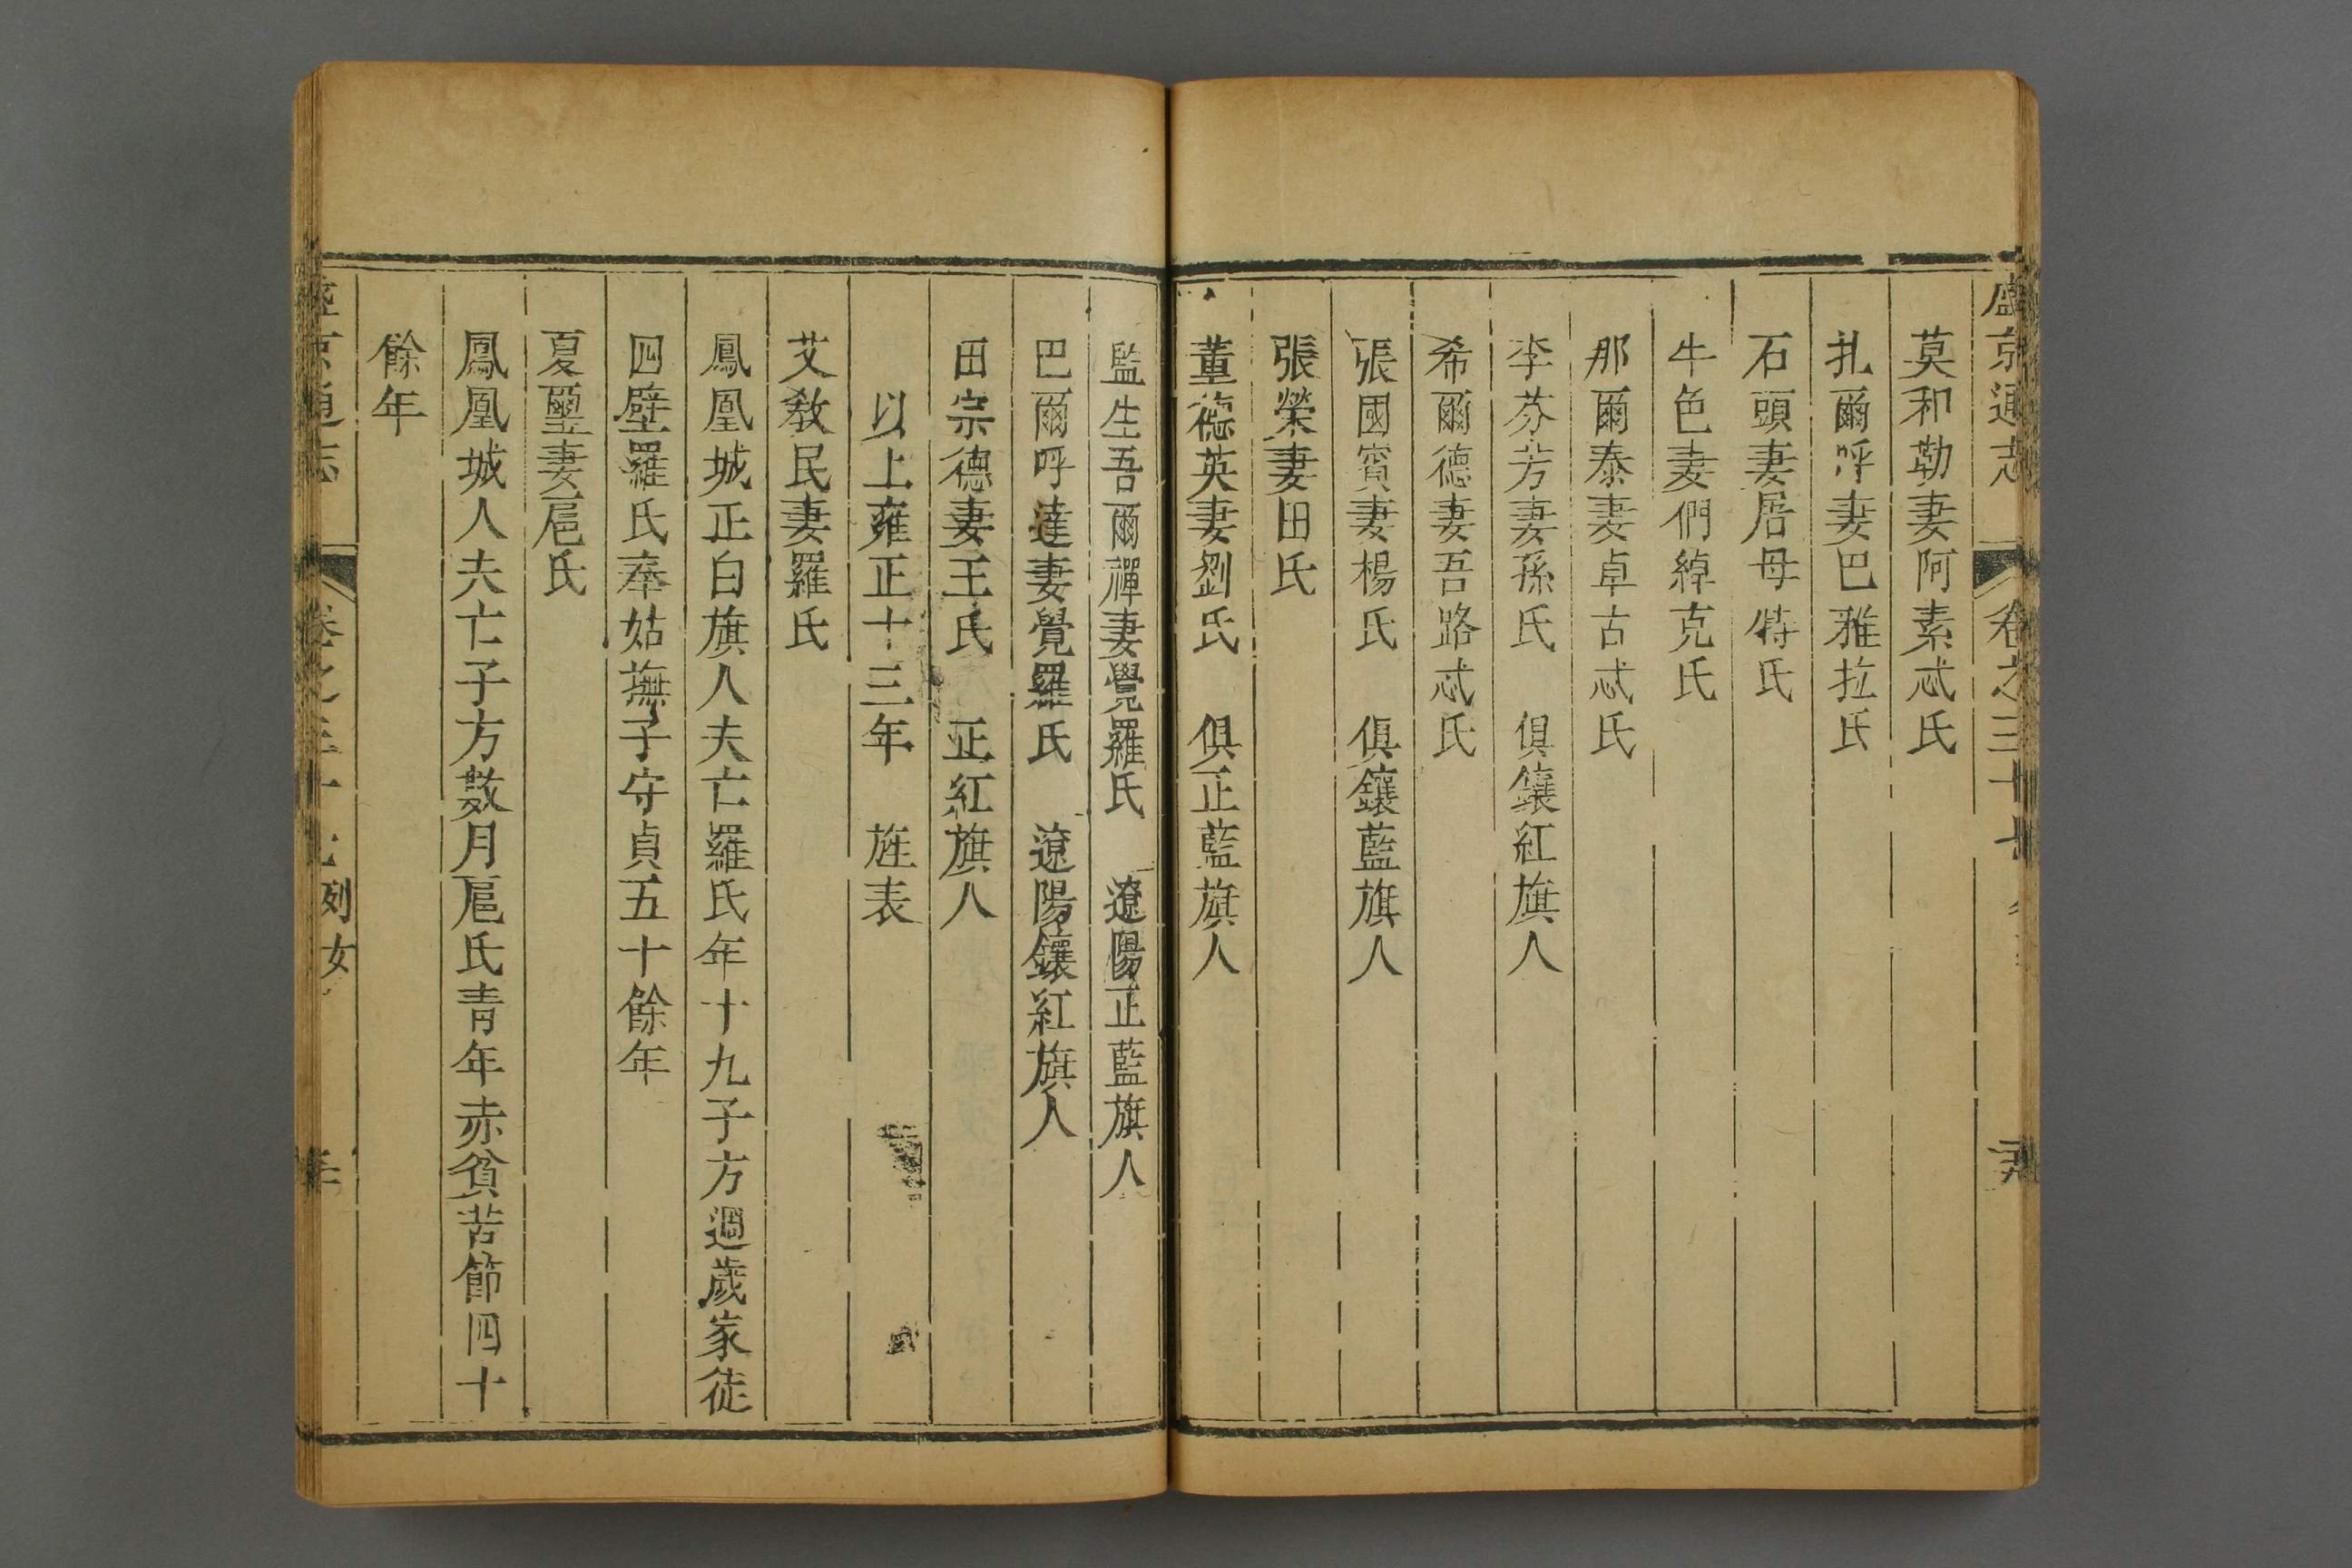 盛京通志 卷之三十七
莫和勒妻阿素忒氏
扎爾呼妻巴雅拉氏
石頭妻居母特氏
牛色妻們綽克氏
那爾泰妻卓古忒氏
李芬芳妻孫氏 俱鑲紅旗人
希爾德妻吾路忒氏
張國賓妻楊氏 俱鑲藍旗人
張榮妻田氏
董德英妻劉氏 俱正藍旗人
監生吾爾禪妻覺羅氏 遼陽正藍旗人
巴爾呼達妻覺羅氏 遼陽鑲紅旗人
田宗德妻王氏 正紅旗人
以上雍正十三年 旌表
艾敎民妻羅氏
鳳凰城正白旗人夫亡羅氏年十九子方週歲家徒
四壁羅氏奉姑撫子守貞五十餘年
夏璽妻扈氏
鳳凰城人夫亡子方數月扈氏青年赤貧苦節四十
餘年
盛京通志 卷之三十七 列女